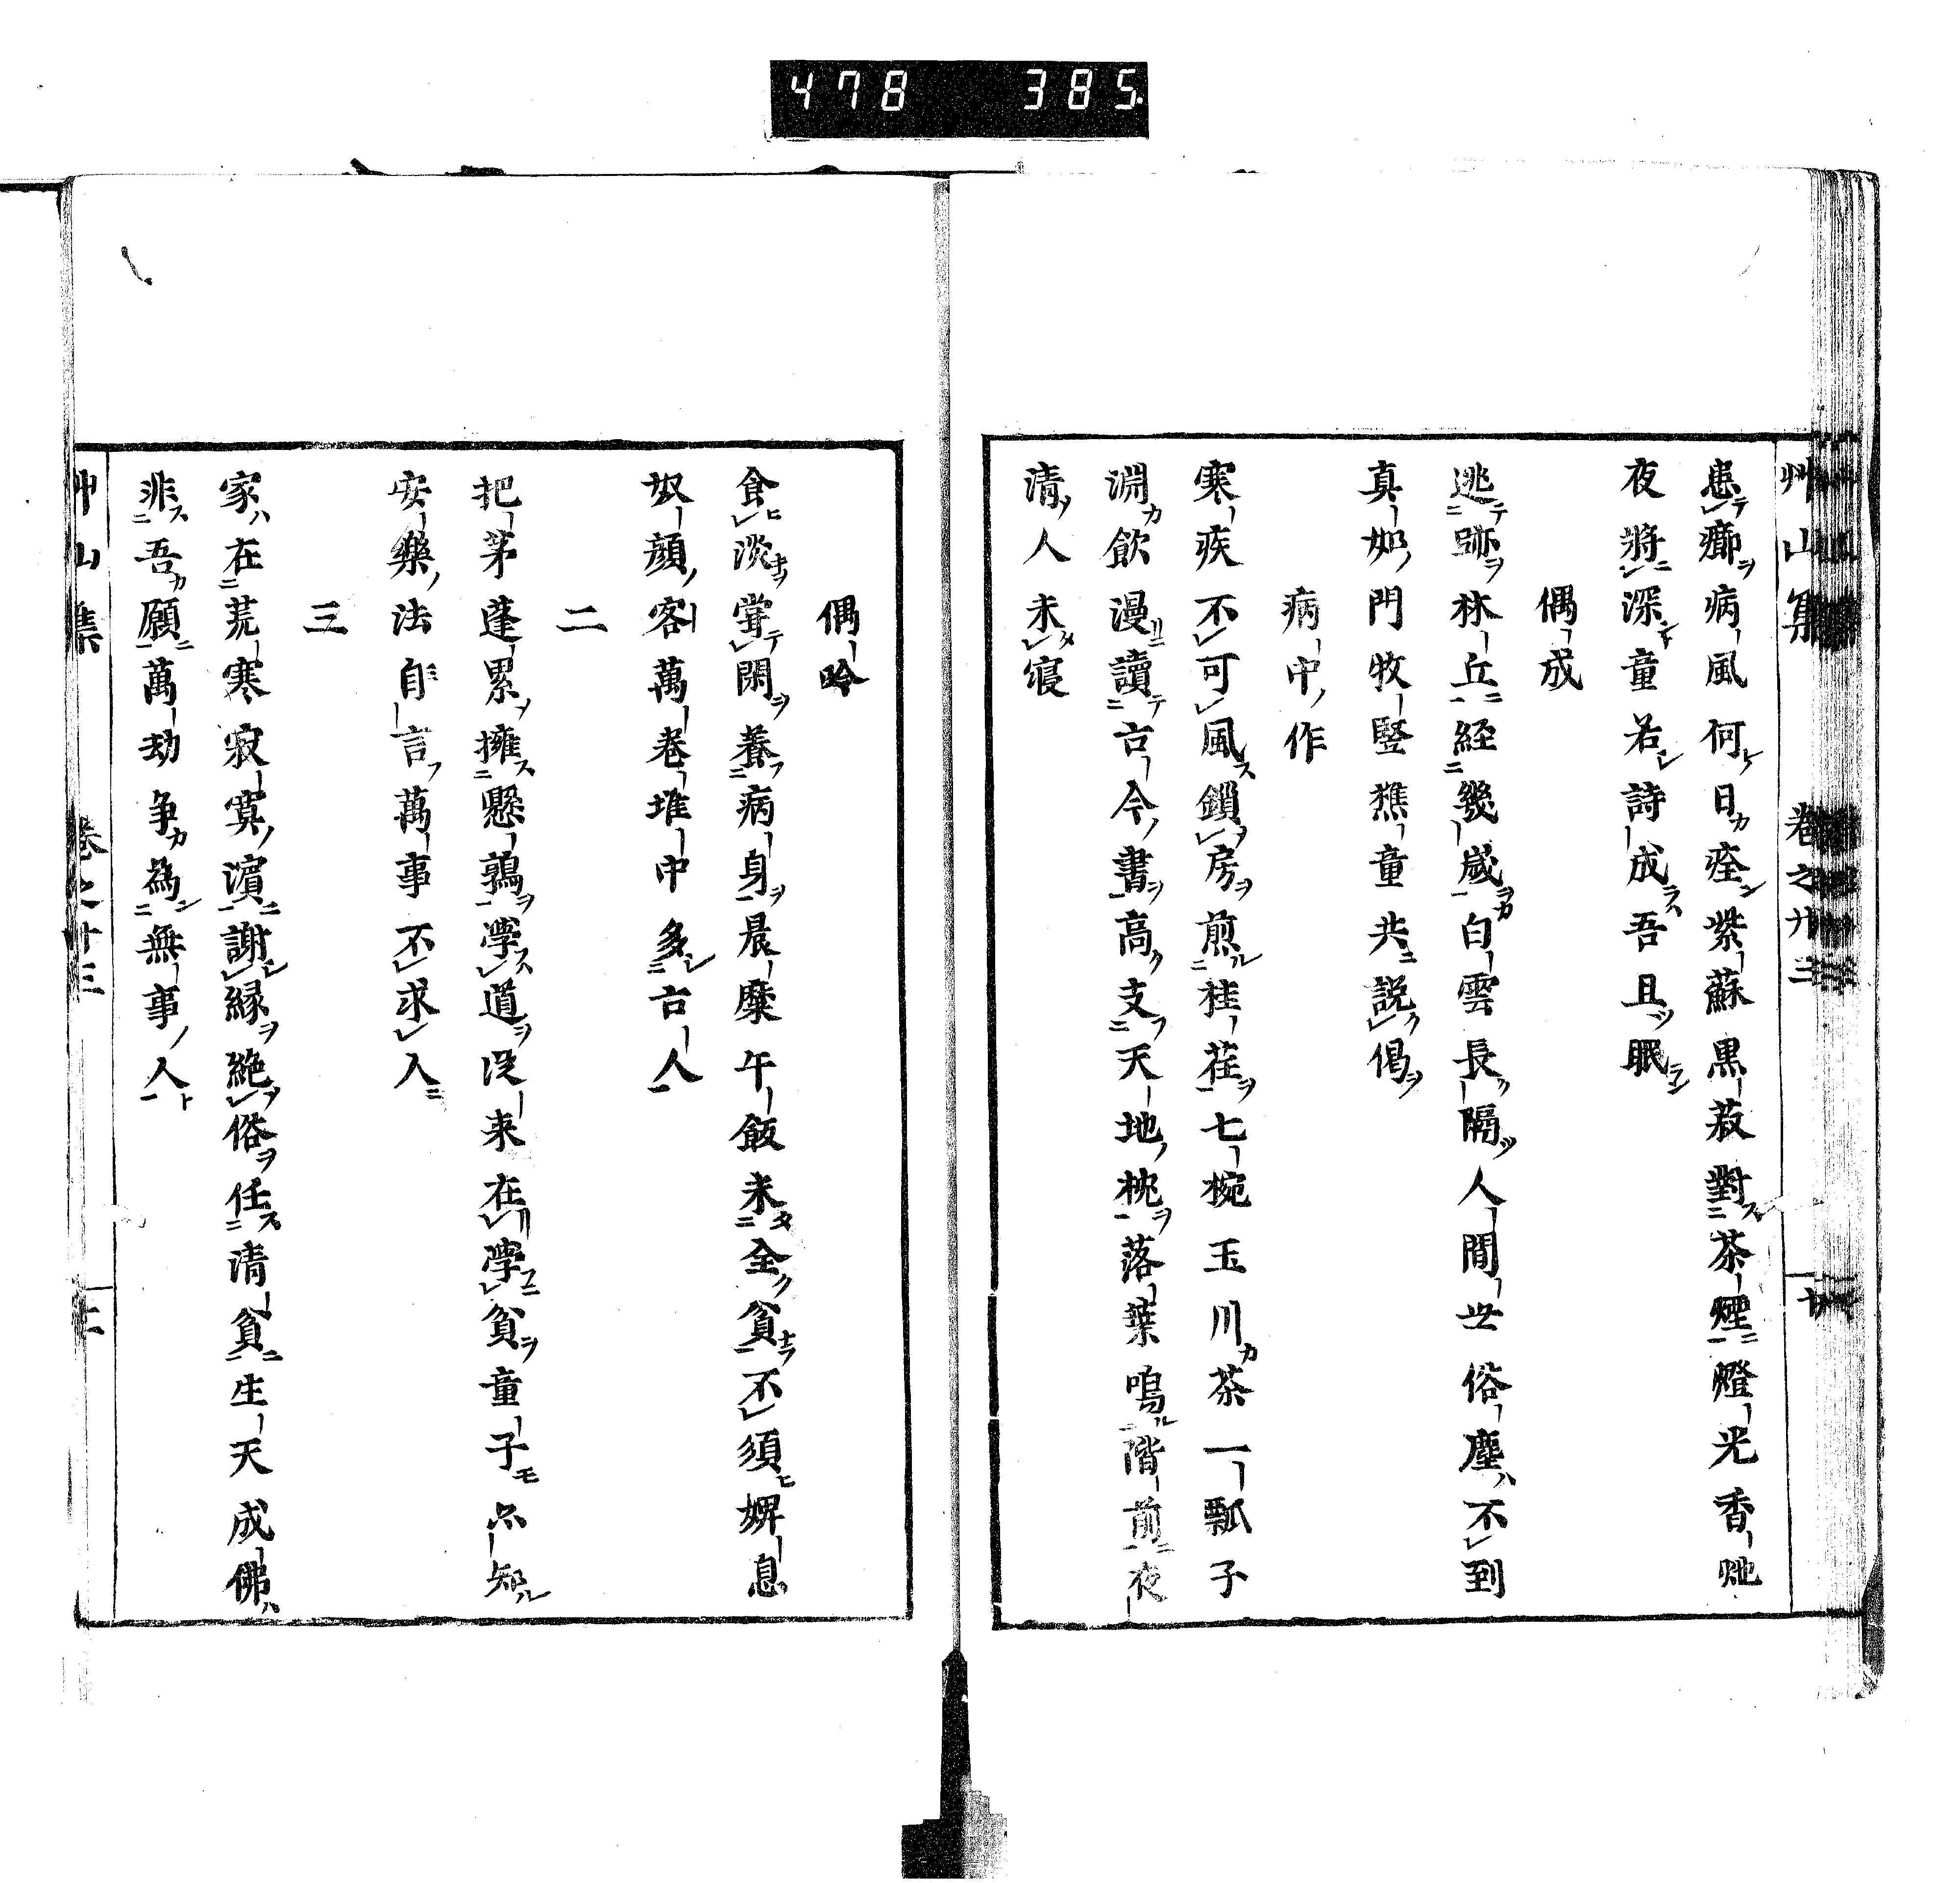 478 385
艸山集 卷之廿三
患癤病風何日痊紫蘇黒菽對茶煙燈光香灺
夜將深童若詩成吾且眠
偶成
逃跡林丘経幾歳白雲長隔人間世俗塵不到
真如門牧豎樵童共説偈
病中作
寒疾不可風鎖房煎桂荏七椀玉川茶一瓢子
淵飲漫讀古今書高支天地枕落葉鳴階前夜
清人未寝
偶吟
食淡甞閑養病身晨糜午飯未全貧不須婢息
奴顔客萬巻堆中多古人
二
把茅蓬累擁懸鶉學道従来在學貧童子亦知
安樂法自言萬事不求人
三
家在荒寒寂寞濵謝縁絶俗任清貧生天成佛
非吾願萬劫争為無事人
艸山集 卷之廿三